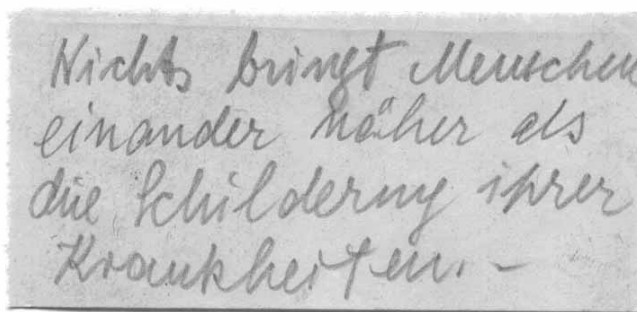 Nichts bringt Menschen
einander näher als
die Schilderung ihrer
Krankheiten. -